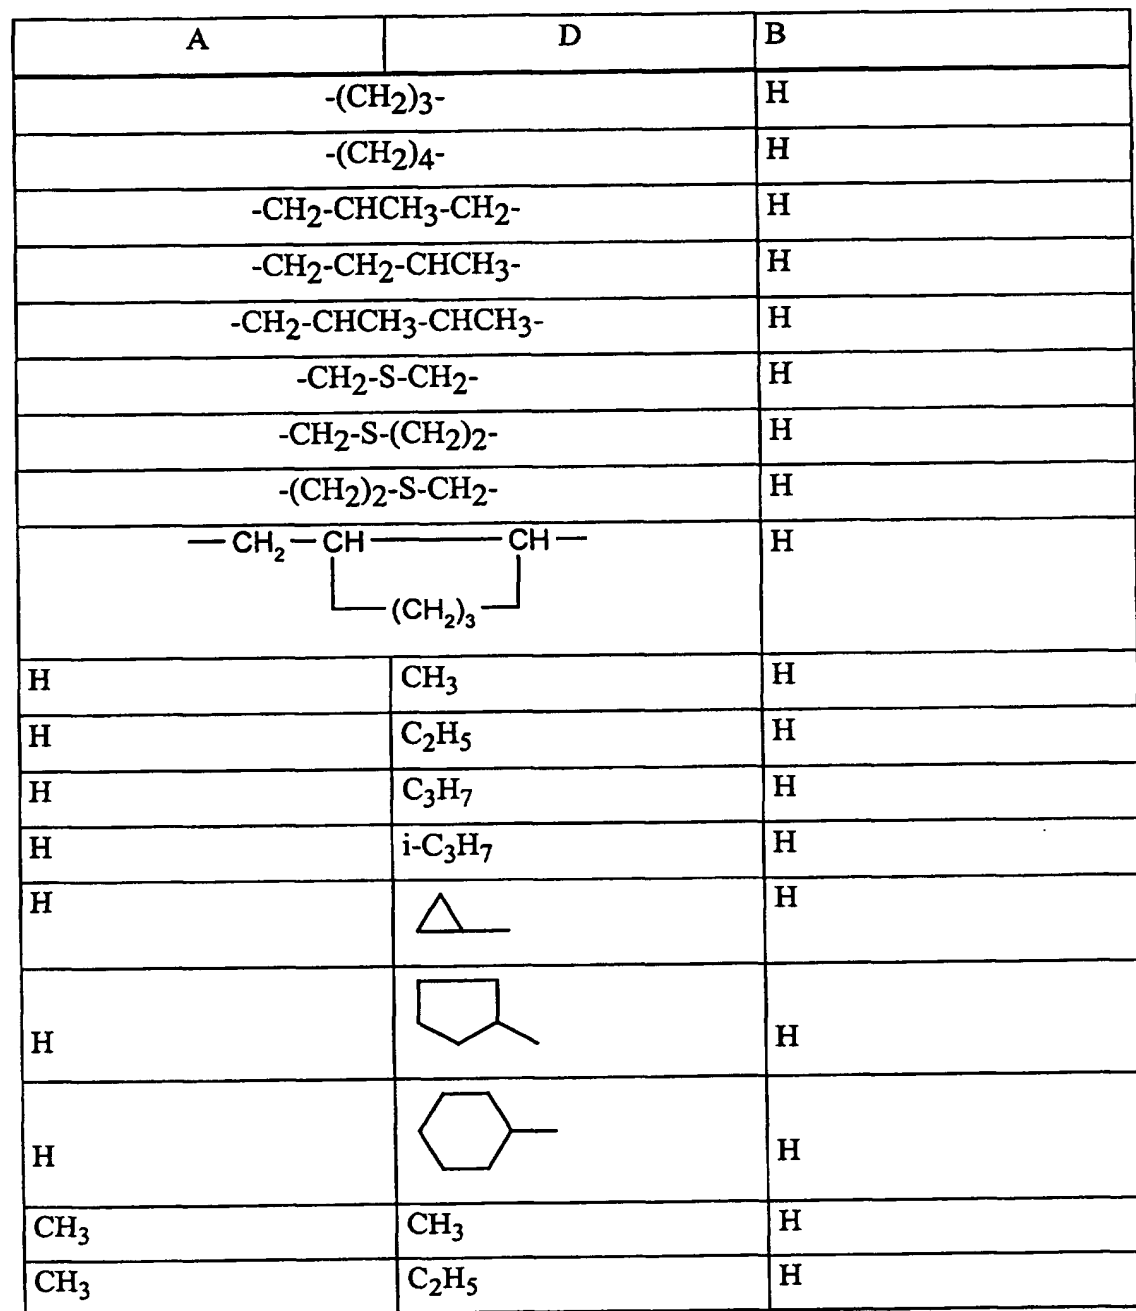 A D B
-(CH2)3- H
-(CH2)4- H
-CH2-CHCH3-CH2- H
-CH2-CH2-CHCH3- H
-CH2-CHCH3-CHCH3- H
-CH2-S-CH2- H
-CH2-S-(CH2)2- H
-(CH2)2-S-CH2- H
CH2 CH CH H
(CH2)3
H CH3 H
H C2H5 H
H C3H7 H
H i-C3H7 H
H H
H H
H H
CH3 CH3 H
CH3 C2H5 H